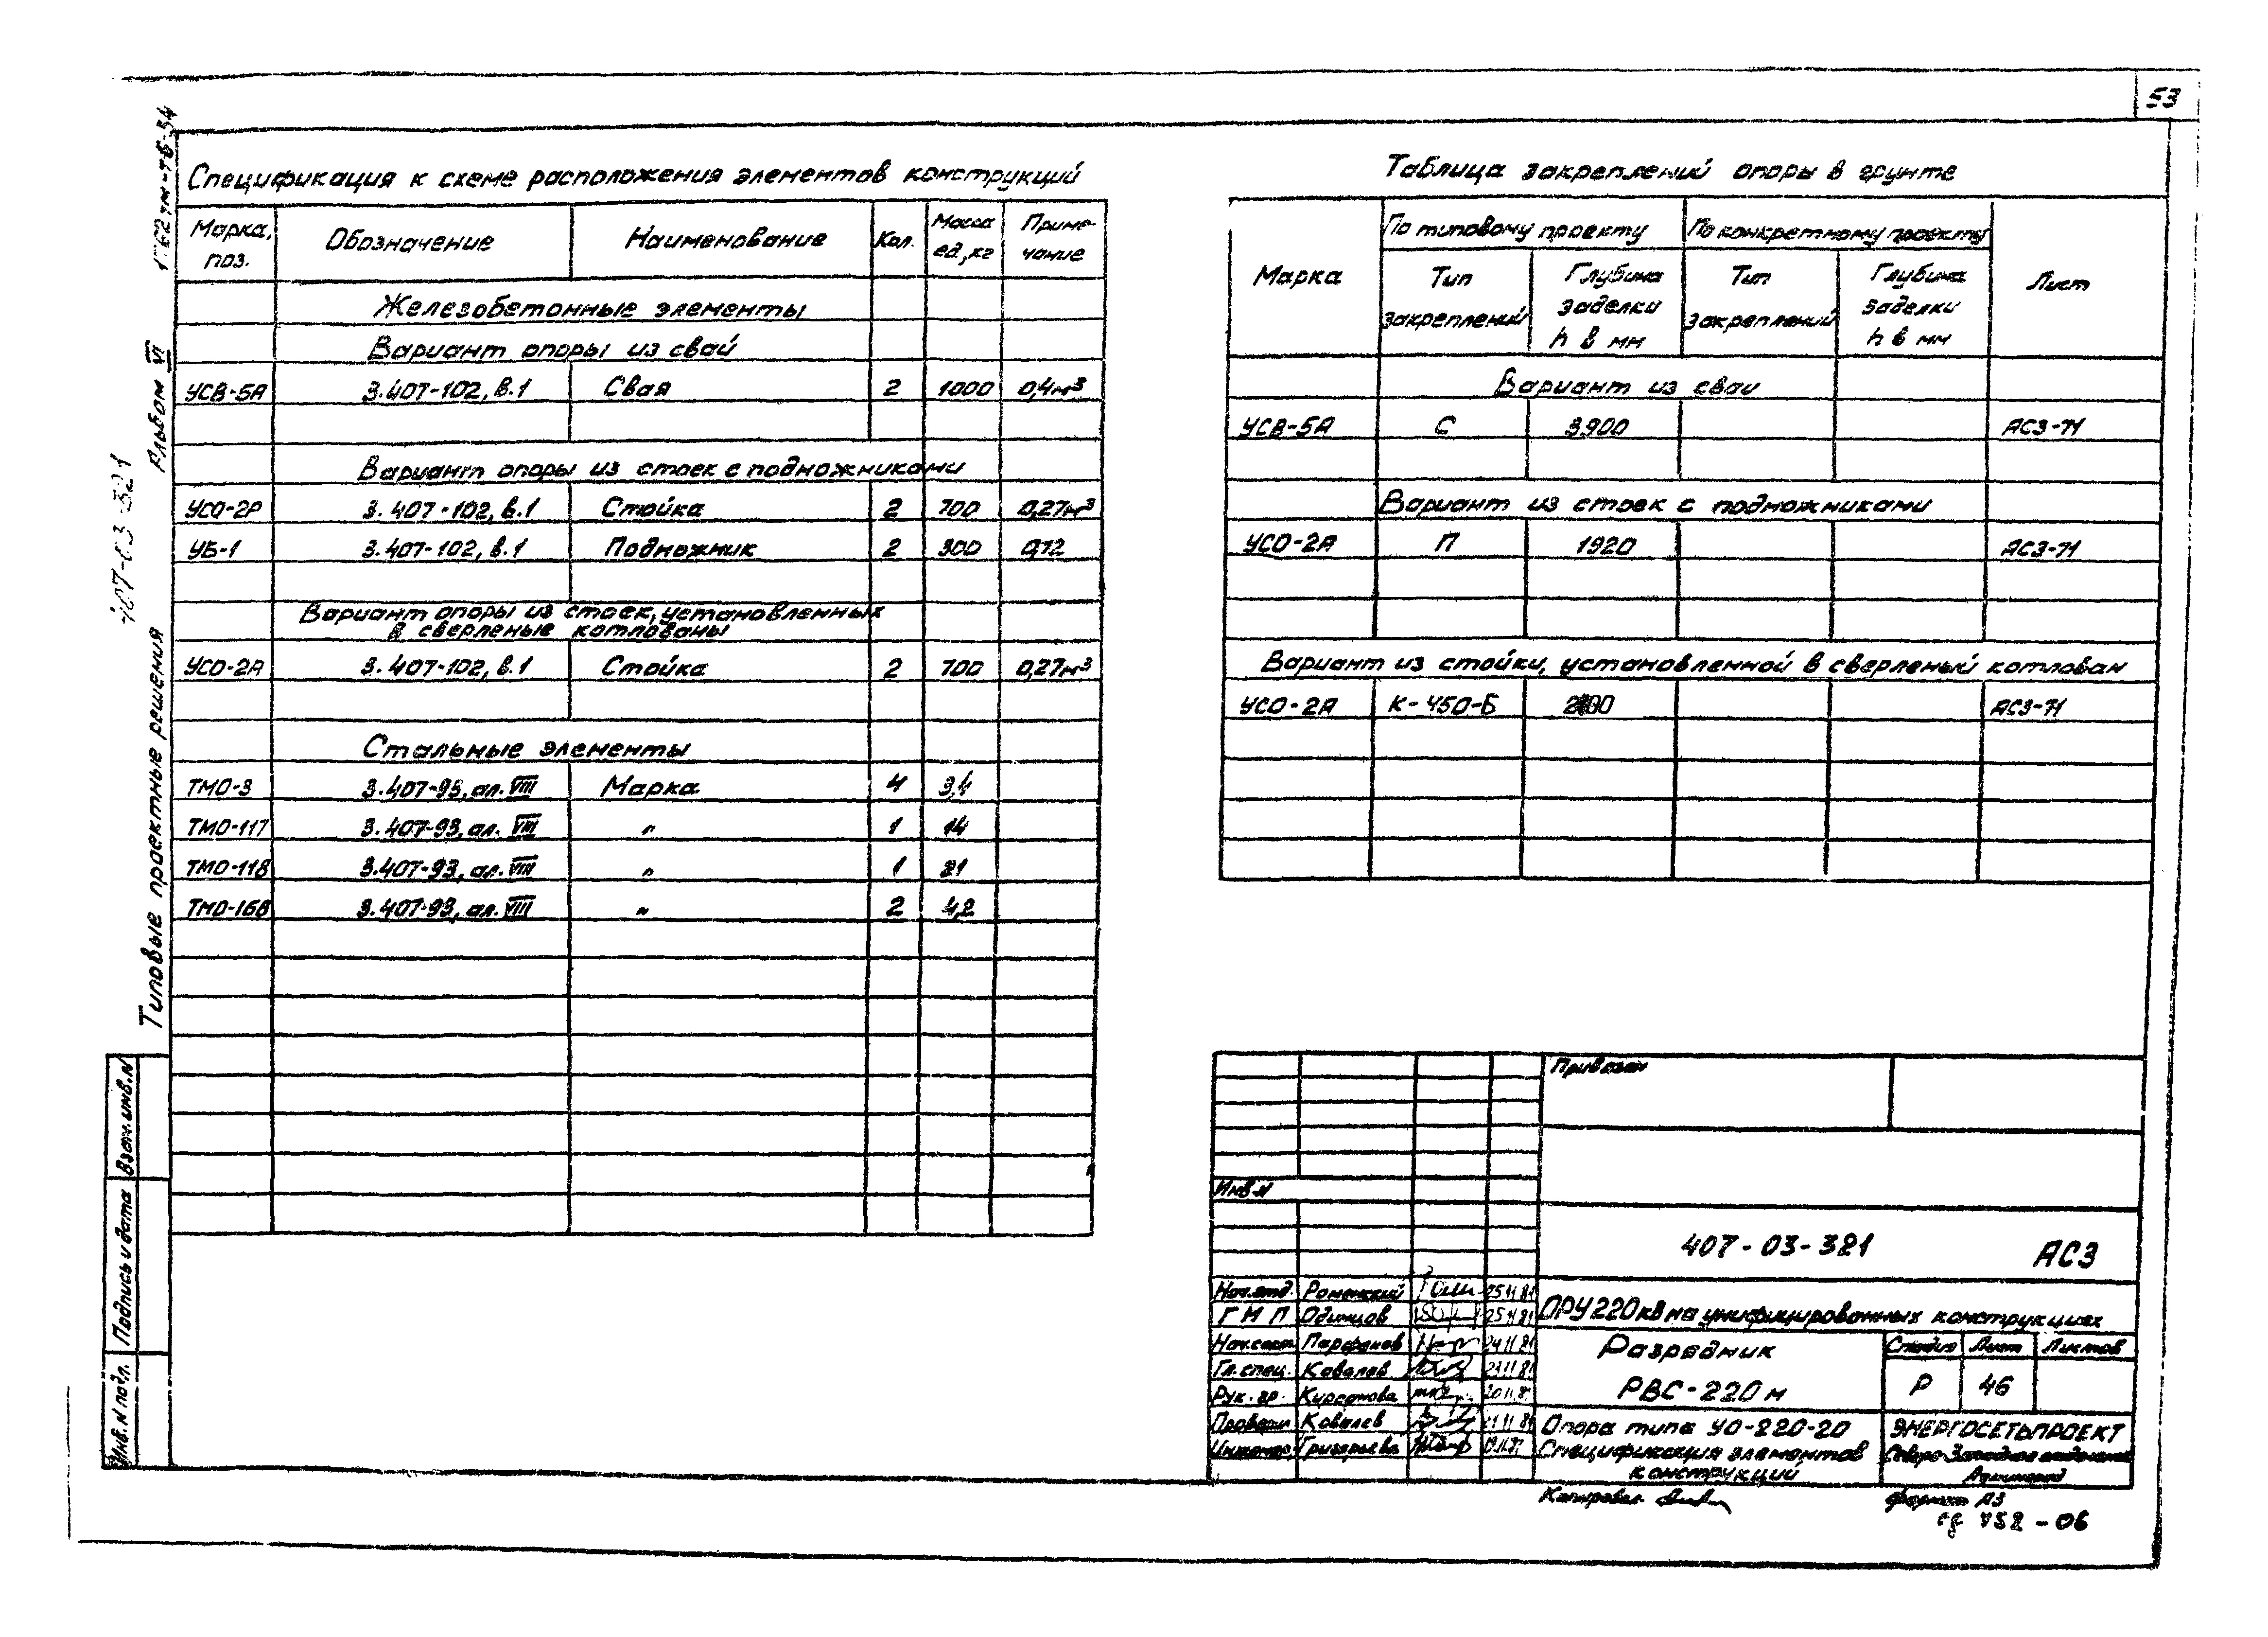 53
Спецификация к схеме расположения элементов конструкций
Марка, поз. Обозначение Наименование Кол. Масса ед., кг Приме-чание
Железобетонные элементы
Вариант опоры из свай
УСВ-5А 3.407-102, в.1 Свая 2 1000 0,4м³
Вариант опоры из стоек с подножниками
УСО-2Р 3.407-102, в.1 Стойка 2 700 0,27м³
УБ-1 3.407-102, в.1 Подножник 2 300 0,12
Вариант опоры из стоек, установленных
в сверленые котлованы
УСО-2А 3.407-102, в.1 Стойка 2 700 0,27м³
Стальные элементы
ТМО-3 3.407-93, ал. VIII Марка 4 3,4
ТМО-117 3.407-93, ал. VIII " 1 14
ТМО-118 3.407-93, ал. VIII " 1 21
ТМО-168 3.407-93, ал. VIII " 2 4,2
Таблица закреплений опоры в грунте
Марка По типовому проекту По конкретному проекту Лист
Тип закреплений Глубина заделки h в мм Тип закреплений Глубина заделки h в мм
Вариант из сваи
УСВ-5А С 3900 АС3-71
Вариант из стоек с подножниками
УСО-2А П 1920 АС3-71
Вариант из стойки, установленной в сверленый котлован
УСО-2А К-450-Б АС3-71
Альбом VI
407-03-321
Типовые проектные решения
Взам. инв. N
Подпись и дата
Инв. N подл.
Привязан
Инв. N
407-03-321 АС3
Нач. отд. Роменский 25.11.81
ГМП Одинцов 25.11.81
Нач. сект. Парфенов 24.11.81
Гл. спец. Ковалев 23.11.81
Рук. гр. 20.11.81
Провери Ковалев 21.11.81
Инженер Григорьева
ОРУ 220 кВ на унифицированных конструкциях
Разрядник
РВС-220 м
Стадия Лист Листов
Р 46
Опора типа УО-220-20
Спецификация элементов
конструкций
ЭНЕРГОСЕТЬПРОЕКТ
Северо-Западное отделение
Ленинград
Копировал
Формат А3
-06